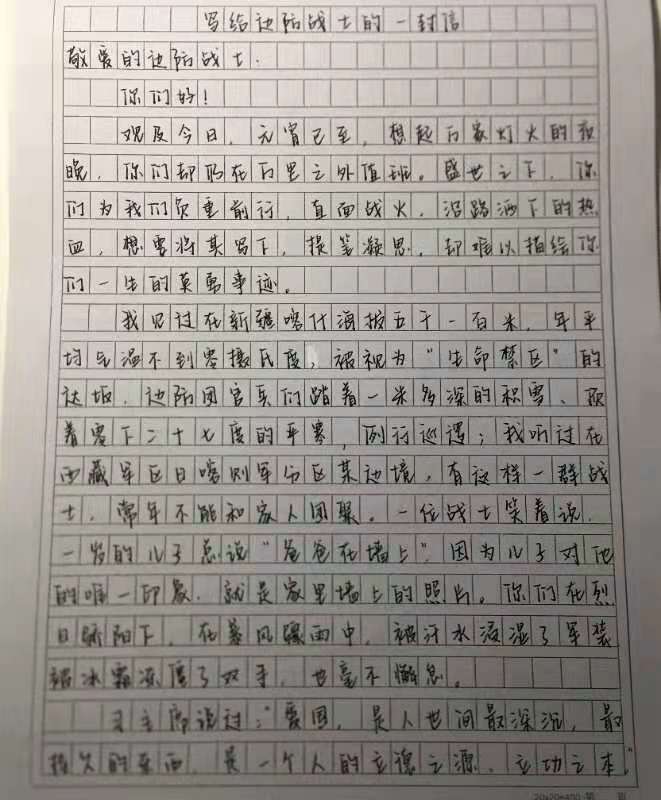 写给边防战士的一封信
敬爱的边防战士：
你们好！
观及今日，元宵已至，想起万家灯火的夜
晚，你们却仍在万里之外值班。盛世之下，你
们为我们负重前行，直面战火，沿路洒下的热
血，想要将其写下，提笔凝思，却难以描绘你
们一生的英勇事迹。
我见过在新疆喀什海拔五千一百米，年平
均气温不到零摄氏度，被视为“生命禁区”的
达坂，边防团官兵们踏着一米多深的积雪、顶
着零下二十七度的严寒，例行巡逻；我听过在
西藏军区日喀则军分区某边境，有这样一群战
士，常年不能和家人团聚。一位战士笑着说，
一岁的儿子总说“爸爸在墙上”，因为儿子对他
的唯一印象，就是家里墙上的照片。你们在烈
日骄阳下，在暴风骤雨中，被汗水浸湿了军装
被冰霜冻僵了双手，也毫不懈怠。
习主席说过：“爱国，是人世间最深沉，最
持久的东西，是一个人的立德之源、立功之本。”
20x20=400 第 页